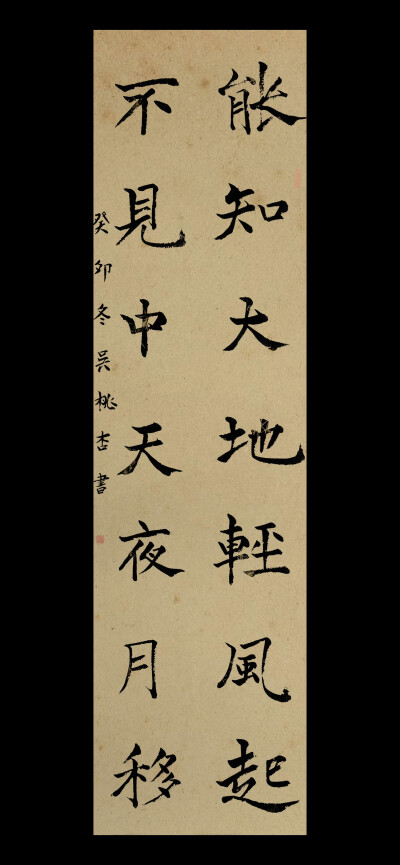 能知大地輕風起
不見中天夜月移
癸卯冬吳桃杏書